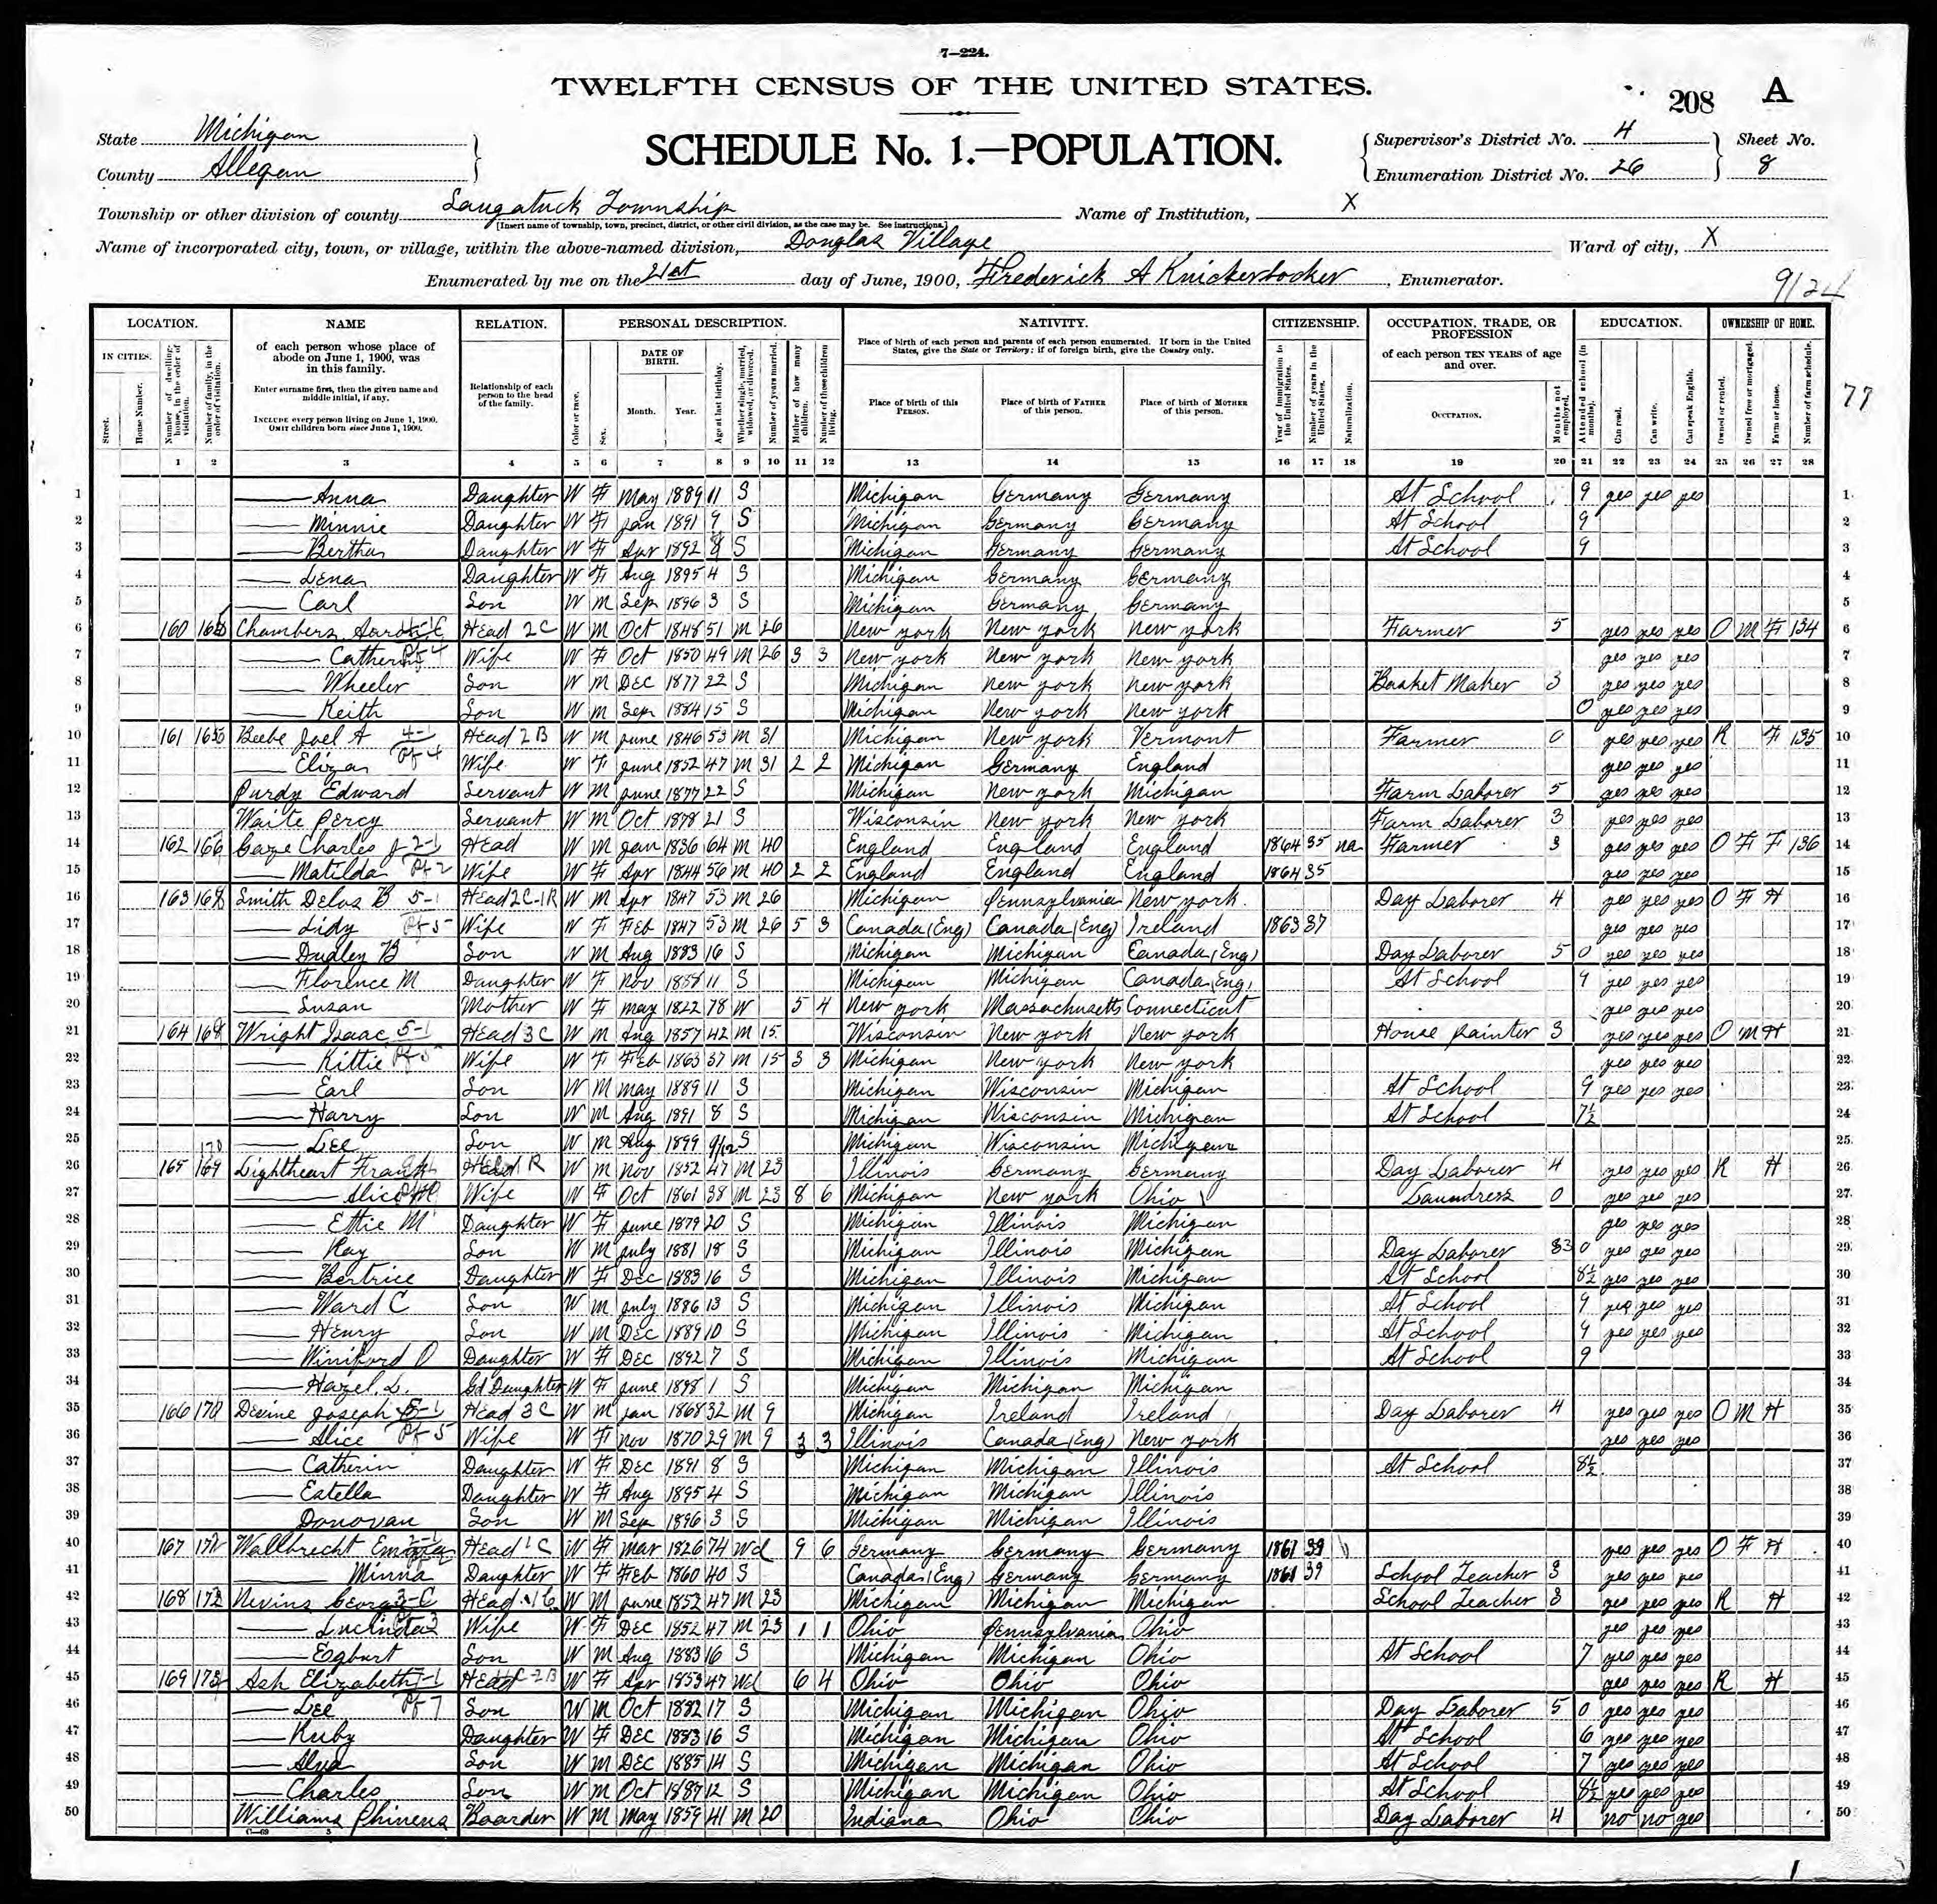 7—224.
TWELFTH CENSUS OF THE UNITED STATES.
208 A
State Michigan
County Allegan
SCHEDULE No. 1.—POPULATION.
Supervisor's District No. 4
Enumeration District No. 26
Sheet No. 8
Township or other division of county Saugatuck Township
Name of Institution, X
[Insert name of township, town, precinct, district, or other civil division, as the case may be. See instructions.]
Name of incorporated city, town, or village, within the above-named division, Douglas Village
Ward of city, X
Enumerated by me on the 21st day of June, 1900, Frederick A Knickerbocker, Enumerator.
9124
77
LOCATION. NAME RELATION. PERSONAL DESCRIPTION. NATIVITY. CITIZENSHIP. OCCUPATION, TRADE, OR PROFESSION EDUCATION. OWNERSHIP OF HOME.
IN CITIES. Street. House Number. Number of dwelling-house, in the order of visitation. Number of family, in the order of visitation.
of each person whose place of abode on June 1, 1900, was in this family.
Enter surname first, then the given name and middle initial, if any.
INCLUDE every person living on June 1, 1900. OMIT children born since June 1, 1900.
Relationship of each person to the head of the family.
Color or race. Sex. DATE OF BIRTH. Month. Year. Age at last birthday. Whether single, married, widowed, or divorced. Number of years married. Mother of how many children. Number of these children living.
Place of birth of each person and parents of each person enumerated. If born in the United States, give the State or Territory; if of foreign birth, give the Country only.
Place of birth of this PERSON. Place of birth of FATHER of this person. Place of birth of MOTHER of this person.
Year of immigration to the United States. Number of years in the United States. Naturalization.
of each person TEN YEARS of age and over.
OCCUPATION. Months not employed. Attended school (in months). Can read. Can write. Can speak English. Owned or rented. Owned free or mortgaged. Farm or house. Number of farm schedule.
1 2 3 4 5 6 7 8 9 10 11 12 13 14 15 16 17 18 19 20 21 22 23 24 25 26 27 28
1 Anna Daughter W F May 1889 11 S Michigan Germany Germany At School 9 yes yes yes 1
2 Minnie Daughter W F Jan 1891 9 S Michigan Germany Germany At School 9 2
3 Bertha Daughter W F Apr 1892 8 S Michigan Germany Germany At School 9 3
4 Lena Daughter W F Aug 1895 4 S Michigan Germany Germany 4
5 Carl Son W M Sep 1896 3 S Michigan Germany Germany 5
6 160 Chambers Head 2C W M Oct 1848 51 M 26 New York New York New York Farmer 5 yes yes yes O M F 134 6
7 Wife W F Oct 1850 49 M 26 3 3 New York New York New York yes yes yes 7
8 Wheeler Son W M Dec 1877 22 S Michigan New York New York Basket Maker 3 yes yes yes 8
9 Keith Son W M Sep 1884 15 S Michigan New York New York 0 yes yes yes 9
10 161 Beebe Joel A Head 2B W M June 1846 53 M 31 Michigan New York Vermont Farmer 0 yes yes yes R F 135 10
11 Eliza Wife W F June 1852 47 M 31 2 2 Michigan Germany England yes yes yes 11
12 Purdy Edward Servant W M June 1877 22 S Michigan New York Michigan Farm Laborer 5 yes yes yes 12
13 Waite Percy Servant W M Oct 1878 21 S Wisconsin New York New York Farm Laborer 3 yes yes yes 13
14 162 166 Gaze Charles J 2-1 Head W M Jan 1836 64 M 40 England England England 1864 35 na Farmer 3 yes yes yes O F F 136 14
15 Matilda Pf 2 Wife W F Apr 1844 56 M 40 2 2 England England England 1864 35 yes yes yes 15
16 163 168 Smith Delos B 5-1 Head 2C-1R W M Apr 1847 53 M 26 Michigan Pennsylvania New York Day Laborer 4 yes yes yes O F H 16
17 Lidy Pf 5 Wife W F Feb 1847 53 M 26 5 3 Canada (Eng) Canada (Eng) Ireland 1863 37 yes yes yes 17
18 Dudley B Son W M Aug 1883 16 S Michigan Michigan Canada (Eng) Day Laborer 5 0 yes yes yes 18
19 Florence M Daughter W F Nov 1888 11 S Michigan Michigan Canada (Eng) At School 9 yes yes yes 19
20 Susan Mother W F May 1822 78 W 5 4 New York Massachusetts Connecticut yes yes yes 20
21 164 168 Wright Isaac 5-1 Head 3C W M Aug 1857 42 M 15 Wisconsin New York New York House Painter 3 yes yes yes O M H 21
22 Kittie Pf 5 Wife W F Feb 1863 37 M 15 3 3 Michigan New York New York yes yes yes 22
23 Earl Son W M May 1889 11 S Michigan Wisconsin Michigan At School 9 yes yes yes 23
24 Harry Son W M Aug 1891 8 S Michigan Wisconsin Michigan At School 7½ 24
25 Lee Son W M Aug 1899 9/12 S Michigan Wisconsin Michigan 25
26 165 170 169 Lightheart Frank Head R W M Nov 1852 47 M 23 Illinois Germany Germany Day Laborer 4 yes yes yes R H 26
27 Alice Wife W F Oct 1861 38 M 23 8 6 Michigan New York Ohio Laundress 0 yes yes yes 27
28 Ettie M Daughter W F June 1879 20 S Michigan Illinois Michigan yes yes yes 28
29 Ray Son W M July 1881 18 S Michigan Illinois Michigan Day Laborer 0 yes yes yes 29
30 Bertrice Daughter W F Dec 1883 16 S Michigan Illinois Michigan At School 8½ yes yes yes 30
31 Ward C Son W M July 1886 13 S Michigan Illinois Michigan At School 9 yes yes yes 31
32 Henry Son W M Dec 1889 10 S Michigan Illinois Michigan At School 9 yes yes yes 32
33 Winiford O Daughter W F Dec 1892 7 S Michigan Illinois Michigan At School 9 33
34 Hazel L. Gd Daughter W F June 1898 1 S Michigan Michigan Michigan 34
35 166 170 Devine Joseph 5-1 Head 3C W M Jan 1868 32 M 9 Michigan Ireland Ireland Day Laborer 4 yes yes yes O M H 35
36 Alice Pf 5 Wife W F Nov 1870 29 M 9 3 3 Illinois Canada (Eng) New York yes yes yes 36
37 Catherin Daughter W F Dec 1891 8 S Michigan Michigan Illinois At School 8½ 37
38 Estella Daughter W F Aug 1895 4 S Michigan Michigan Illinois 38
39 Donovan Son W M Sep 1896 3 S Michigan Michigan Illinois 39
40 167 Wallbrecht Head 1C W F Mar 1826 74 Wd 9 6 Germany Germany Germany 1861 39 yes yes yes O F H 40
41 Minna Daughter W F Feb 1860 40 S Canada (Eng) Germany Germany 1861 39 School Teacher 3 yes yes yes 41
42 168 Nevins George Head W M June 1852 47 M 23 Michigan Michigan Michigan School Teacher 3 yes yes yes R H 42
43 Lucinda Wife W F Dec 1852 47 M 23 1 1 Ohio Pennsylvania Ohio yes yes yes 43
44 Egburt Son W M Aug 1883 16 S Michigan Michigan Ohio At School 7 yes yes yes 44
45 169 Ash Elizabeth Head W F Apr 1853 47 Wd 6 4 Ohio Ohio Ohio yes yes yes R H 45
46 Lee Pf 7 Son W M Oct 1882 17 S Michigan Michigan Ohio Day Laborer 5 0 yes yes yes 46
47 Ruby Daughter W F Dec 1883 16 S Michigan Michigan Ohio At School 6 yes yes yes 47
48 Alva Son W M Dec 1885 14 S Michigan Michigan Ohio At School 7 yes yes yes 48
49 Charles Son W M Oct 1887 12 S Michigan Michigan Ohio At School 8½ yes yes yes 49
50 Williams Phineus Boarder W M May 1859 41 M 20 Indiana Ohio Ohio Day Laborer 4 no no yes 50